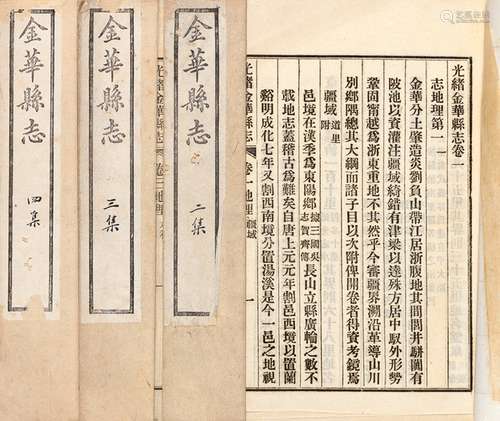 光緒金華縣志卷一
志地理第一
金華分土肇造炎劉負山帶江居浙腹地其間閭井駢闐有
陂池以資灌注疆域綺錯有津梁以達殊方居中馭外形勢
鞏固甯越爲浙東重地不其然乎今審疆界溯沿革導山川
別鄉隅總其大綱而諸子目以次附俾開卷者得資考鏡焉
疆域道里附
邑境在漢季爲東陽郡據三國吳志賀齊傳長山立縣廣輪之數不
載地志蓋稽古爲難矣自唐上元元年割邑西境以置蘭
谿明成化七年又割西南境分置湯溪是今一邑之地視
光緒金華縣志 卷一地理 疆域 一
金華縣志 二集
光緒金華縣志 卷三地理
金華縣志 三集
金華縣志 四集